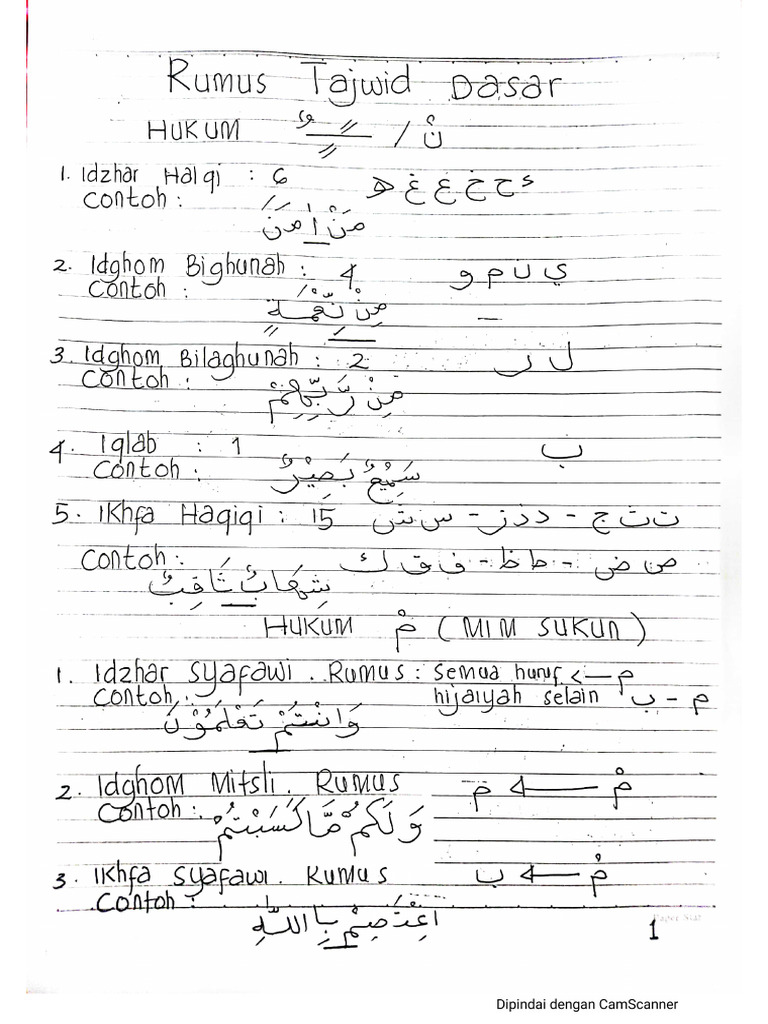 Rumus Tajwid Dasar
HUKUM ـًـٍـٌ / نْ
1. Idzhar Halqi : 6 ء ح خ ع غ ه
Contoh :
مَنْ اٰمَنَ
2. Idghom Bighunah : 4 ي ن م و
Contoh :
مِنْ نِّعْمَةٍ
3. Idghom Bilaghunah : 2 ل ر
Contoh :
مِنْ رَّبِّهِمْ
4. Iqlab : 1 ب
Contoh :
سَمِيْعٌ بَصِيْرٌ
5. Ikhfa Haqiqi : 15 ت ث ج - د ذ ز - س ش
ص ض - ط ظ - ف ق ك
Contoh :
شِهَابٌ ثَاقِبٌ
HUKUM مْ (MIM SUKUN)
1. Idzhar Syafawi . Rumus : semua huruf <— م
Contoh : hijaiyah selain م - ب
وَانْتُمْ تَعْلَمُوْنَ
2. Idghom Mitsli. Rumus مْ ← م
Contoh :
وَلَكُمْ مَّا كَسَبْتُمْ
3. Ikhfa Syafawi. Rumus مْ ← ب
Contoh :
اعْتَصِمْ بِاللّٰهِ
Paper Star
1
Dipindai dengan CamScanner